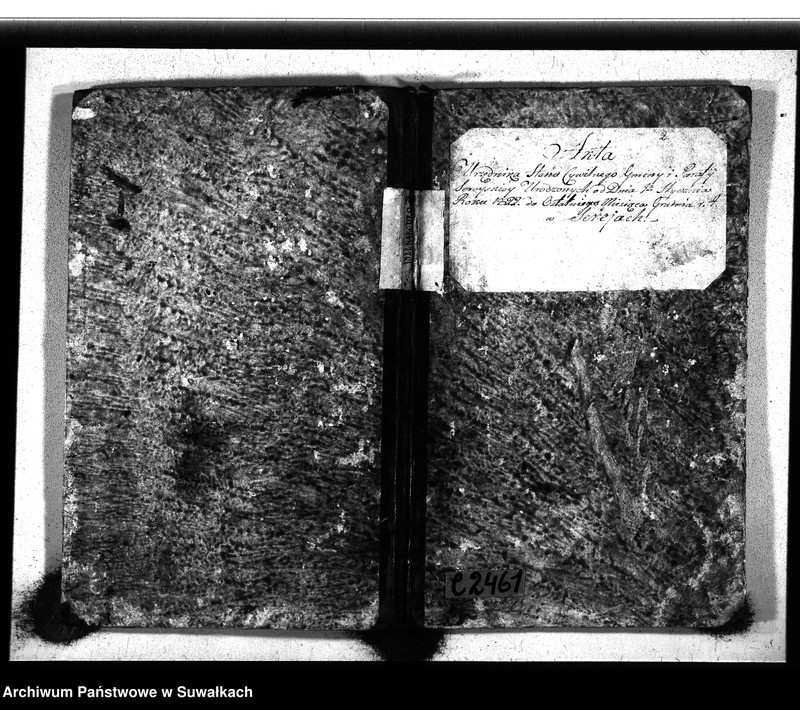 2
Akta
Urzędnika Stanu Cywilnego Gminy i Parafij
Sereyskiey Urodzonych od Dnia 1º Stycznia
Roku 1822. do Ostatniego Miesiąca Grudnia r. t.
w Serejach.
C2461
Archiwum Państwowe w Suwałkach